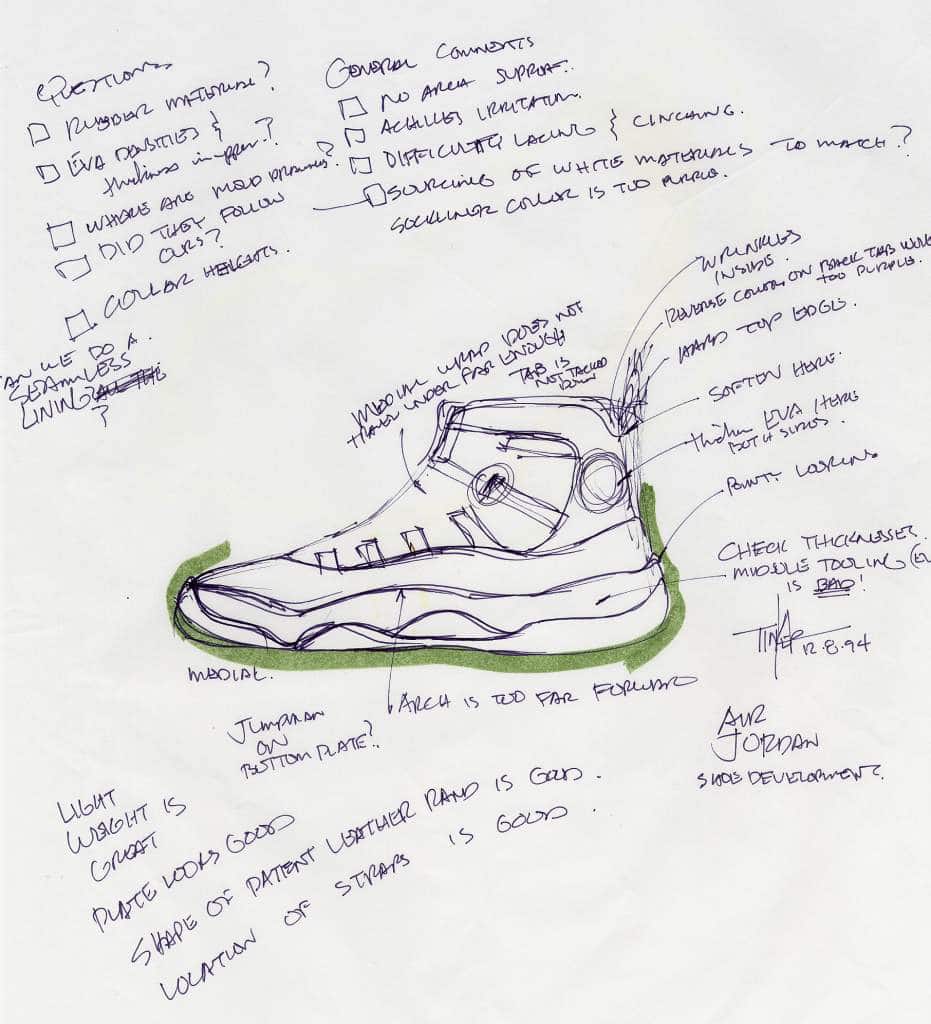 QUESTIONS
RUBBER MATERIAL?
EVA DENSITIES &
thickness in upper?
WHERE ARE MOLD DRAWINGS?
DID THEY FOLLOW
OURS?
COLLAR HEIGHTS.
CAN WE DO A
SEAMLESS
LINING
?
GENERAL COMMENTS
NO ARCH SUPPORT.
ACHILLES IRRITATION.
DIFFICULTY LACING & CINCHING.
SOURCING OF WHITE MATERIALS TO MATCH?
SOCKLINER COLOR IS TOO PURPLE.
WRINKLES
INSIDE.
REVERSE COLORS ON BACK TAB
TOO PURPLE.
HARD TOP EDGE.
SOFTEN HERE.
thicker EVA HERE
BOTH SIDES.
POINTY LOOKING
CHECK THICKNESSES.
MIDDLE TOOLING
IS BAD!
TINKER 12.8.94
MEDIAL WRAP DOES NOT
TRAVEL UNDER FAR ENOUGH
TAB IS
NOT TACKED
DOWN
MEDIAL.
JUMPMAN
ON
BOTTOM PLATE?
ARCH IS TOO FAR FORWARD
AIR
JORDAN
SHOE DEVELOPMENT.
LIGHT
WEIGHT IS
GREAT
PLATE LOOKS GOOD
SHAPE OF PATENT LEATHER RAND IS GOOD.
LOCATION OF STRAPS IS GOOD.